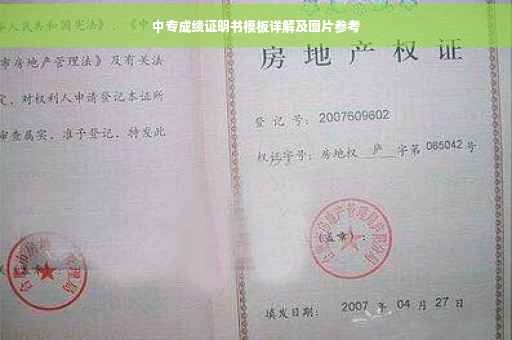 中专成绩证明书模板详解及图片参考
人民共和国宪法》、《中
市房地产管理法》及有关法
定，对权利人申请登记本证所
审查属实，准予登记，特发此
房地产权证
登记号：2007609602
权证字号：房地权 庐 字第 065042 号
(盖章)：
填发日期：2007 年 04 月 27 日